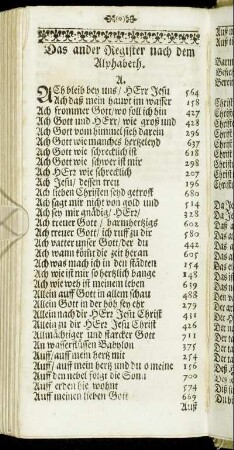 Das ander Register nach dem
Alphabeth.
A.
ACh bleib bey uns/ HErr Jesu 564
Ach daß mein haupt im wasser 158
Ach frommer Gott/ wo soll ich hin 427
Ach Gott und HErr/ wie groß und 428
Ach Gott vom himmel sieh darein 296
Ach Gott wie manches hertzeleyd 637
Ach Gott wie schrecklich ist 618
Ach Gott wie schwer ist mir 298
Ach HErr wie schrecklich 207
Ach Jesu/ dessen treu 196
Ach lieben Christen seyd getrost 680
Ach sagt mir nicht von gold und 514
Ach sey mir gnädig/ HErr/ 328
Ach treuer Gott/ barmhertzigs 602
Ach treuer Gott/ ich ruff zu dir 580
Ach vatter unser Gott/ der du 442
Ach wann kömt die zeit heran 605
Ach was mach ich in den städten 154
Ach wie ist mir so hertzlich bange 148
Ach wie weh ist meinem leben 639
Allein auff Gott in allem schau 488
Allein Gott in der höh sey ehr 279
Allein nach dir HErr Jesu Christ 431
Allein zu dir HErr Jesu Christ 426
Allmächtiger und starcker Gott 711
An wasserflüssen Babylon 375
Auff/ auff mein hertz mit 254
Auff/ auff mein hertz und du o meine 156
Auff den nebel folgt die Sonn 700
Auff erden hie wohnt 574
Auff meinen lieben Gott 669
Auß